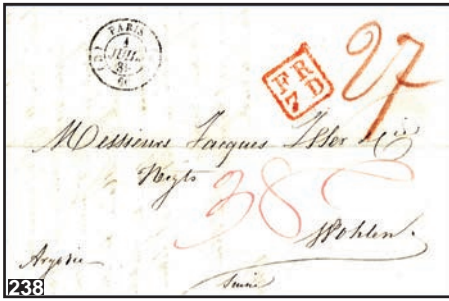 PARIS
4
JUIL.
60
FRD
7
27
Messieurs Jacques Isler & Cie
Negts
38
Wohlen.
Argovie
Suisse
238